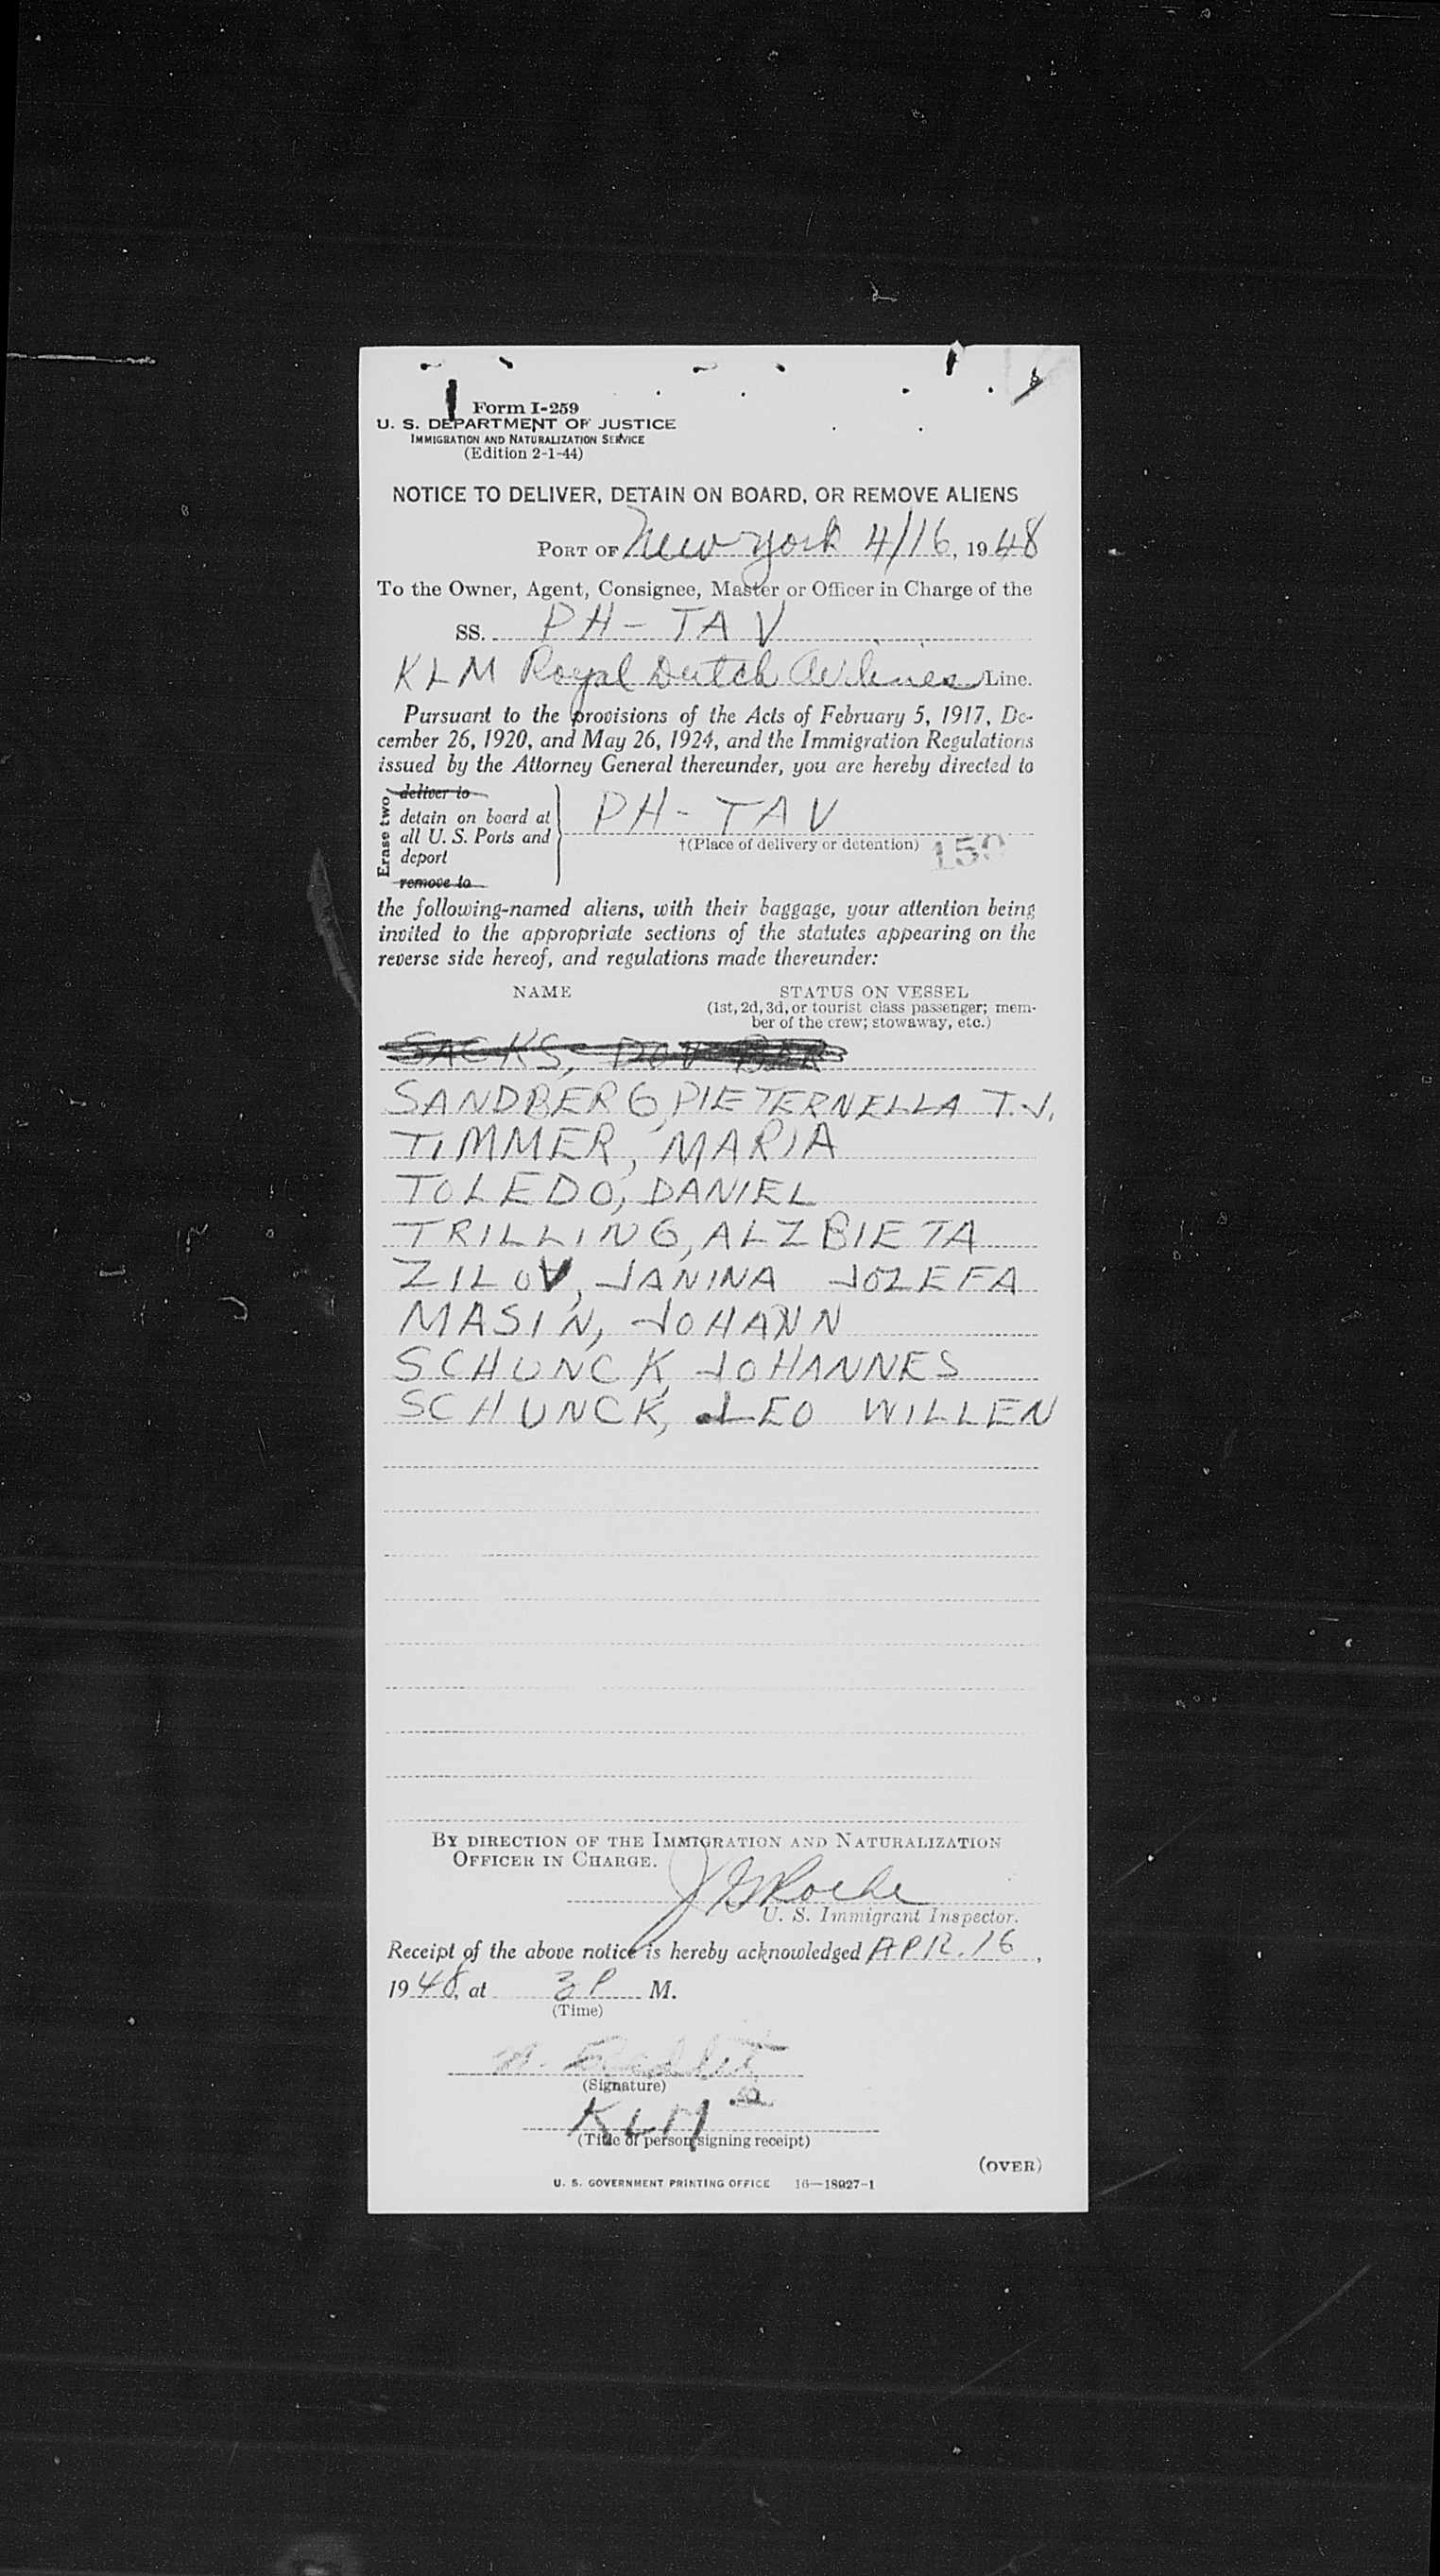 Form I-259
U. S. DEPARTMENT OF JUSTICE
IMMIGRATION AND NATURALIZATION SERVICE
(Edition 2-1-44)
NOTICE TO DELIVER, DETAIN ON BOARD, OR REMOVE ALIENS
PORT OF New York 4/16, 1948
To the Owner, Agent, Consignee, Master or Officer in Charge of the
SS. PH-TAV
KLM Royal Dutch Airlines Line.
Pursuant to the provisions of the Acts of February 5, 1917, De-
cember 26, 1920, and May 26, 1924, and the Immigration Regulations
issued by the Attorney General thereunder, you are hereby directed to
Erase two
deliver to
detain on board at
all U. S. Ports and
deport
remove to
PH-TAV
†(Place of delivery or detention) 159
the following-named aliens, with their baggage, your attention being
invited to the appropriate sections of the statutes appearing on the
reverse side hereof, and regulations made thereunder:
NAME STATUS ON VESSEL
(1st, 2d, 3d, or tourist class passenger; mem-
ber of the crew; stowaway, etc.)
SACKS, DOV BER
SANDBERG, PIETERNELLA T.J.
TIMMER, MARIA
TOLEDO, DANIEL
TRILLING, ALZBIETA
ZILOV, JANINA JOZEFA
MASIN, JOHANN
SCHUNCK, JOHANNES
SCHUNCK, LEO WILLEN
BY DIRECTION OF THE IMMIGRATION AND NATURALIZATION
OFFICER IN CHARGE.
J G Roche
U. S. Immigrant Inspector.
Receipt of the above notice is hereby acknowledged APR. 16,
1948, at 3 P M.
(Time)
(Signature)
KLM
(Title of person signing receipt)
(OVER)
U. S. GOVERNMENT PRINTING OFFICE 16—18927-1